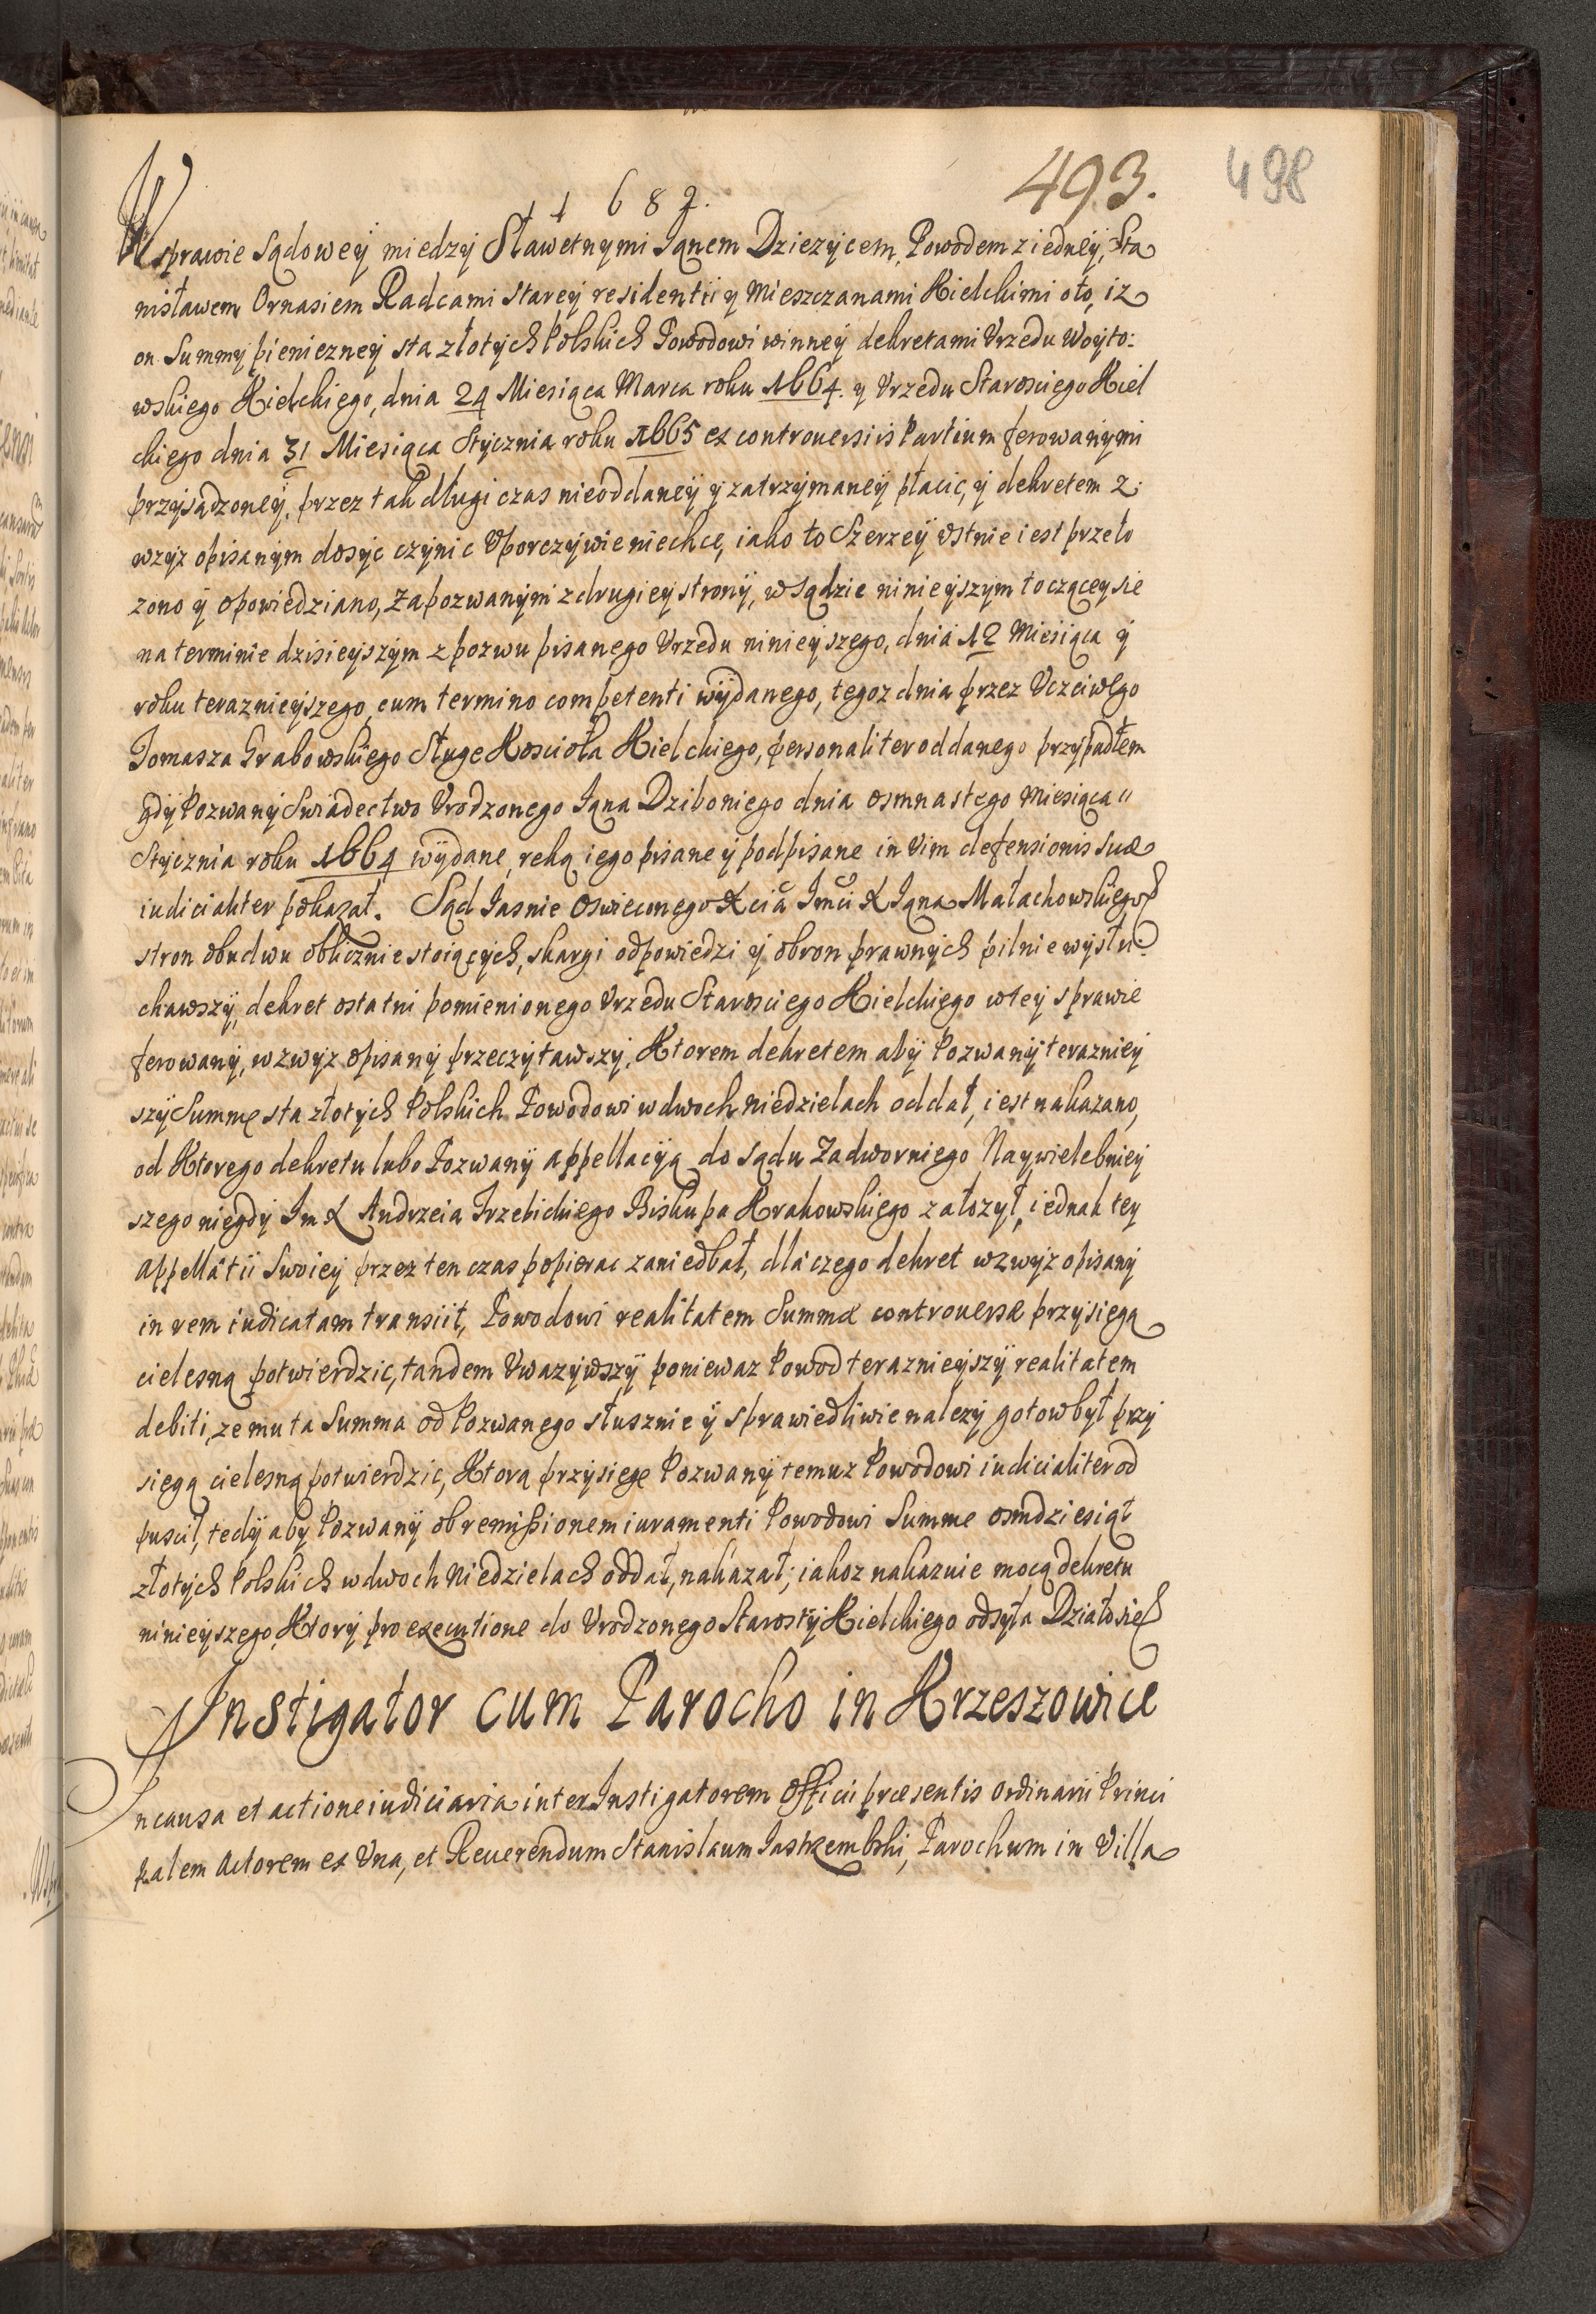 493. 498
1682.
W sprawie Sądowey miedzy Sławetnymi Ianem Dziezycem, Powodem z iedney, Sta
nisławem Ornasiem Radcami starey residentii y Mieszczanami Kielckimi oto, iz
on Summy pienieżney sta złotych Polskich Powodowi winney dekretami Vrzedu Woyto:
wskiego Kielckiego, dnia 24 Miesiąca Marca roku 1664. y Vrzedu Starosciego Kiel
ckiego dnia 31 Miesiąca Stycznia roku 1665 ex controuersiis Partium ferowanymi
przysądzoney, przez tak długi czas nieoddaney y zatrzymaney płacic, y dekretem z
wzyz opisanym dosyc czynic Vporczywie niechce, iako to Szerzey Vstnie iest przeło
zono y opowiedziano, Zapozwanym z drugiey strony, w Sądzie ninieyszym toczącey sie
na terminie dzisieyszym z pozwu pisanego Vrzedu ninieyszego, dnia 12 Miesiąca y
roku teraznieyszego cum termino competenti wydanego, tegoz dnia przez Vczciwego
Tomasza Grabowskiego Sługe Koscioła Kielckiego, personaliter oddanego przypadłem
gdy Pozwany Swiadectwo Vrodzonego Iana Dziboniego dnia osmnastego Miesiąca
Stycznia roku 1664 wydane, reką iego pisane y podpisane in Vim defensionis suæ
iudicialiter pokazał. Sąd Iasnie Oswieconego Xcia Imci X Iana Małachowskiego
stron obudwu oblicznie stoiących, skargi odpowiedzi y obron prawnych pilnie wysłu:
chawszy, dekret ostatni pomienionego Vrzedu Starosciego Kielckiego w tey sprawie
ferowany, wzwyz opisany przeczytawszy, Ktorem dekretem aby Pozwany terazniey
szy Summe sta złotych Polskich Powodowi w dwoch niedzielach oddał, iest nakazano,
od Ktorego dekretu lubo Pozwany appellacyą do sądu Zadworniego Naywielebniey
szego niegdy Im X Andrzeia Trzebickiego Biskupa Krakowskiego załozył, iednak tey
appellatii swoiey przez ten czas popierac zaniedbał, dla czego dekret wzwyz opisany
in rem iudicatam transiit, Powodowi realitatem Summæ controuersæ przysiegą
cielesną potwierdzic, tandem Vwazywszy poniewaz Powod teraznieyszy realitatem
debiti, ze mu ta Summa od Pozwanego słusznie y sprawiedliwie nalezy gotow był przy
siegą cielesną potwierdzic, Ktorą przysiege Pozwany temuz Powodowi iudicialiter od
puscił, tedy aby Pozwany ob remissionem iuramenti Powodowi Summe osmdziesiąt
złotych Polskich w dwoch Niedzielach oddał, nakazał; iakoz nakazuie mocą dekretu
ninieyszego, Ktory pro executione do Vrodzonego Starosty Kielckiego odsyła Działo sie
Instigator cum Parocho in Krzeszowice
In causa et actione iudiciaria inter Instigatorem Officii præsentis Ordinarii Princi
palem Actorem ex Vna, et Reuerendum Stanislaum Iastrzembski, Parochum in Villa